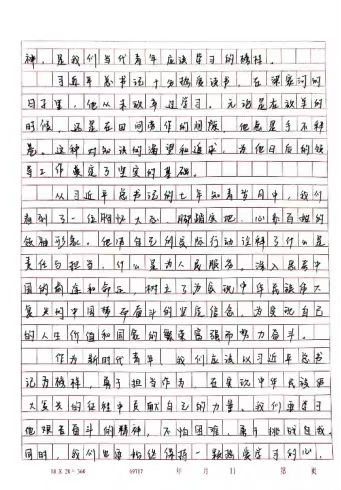 神，是我们当代青年应该学习的榜样。
习近平总书记十分热爱读书，在梁家河的
日子里，他从未放弃过学习，无论是在放羊的
时候，还是在田间劳作的间隙，他总是手不释
卷。这种对知识的渴望和追求，为他日后的领
导工作奠定了坚实的基础。
从习近平总书记的七年知青岁月中，我们
看到了一位胸怀大志、脚踏实地、心系百姓的
领袖形象。他用自己的实际行动诠释了什么是
责任与担当，什么是为人民服务。深入思考中
国的前途和命运，树立了为实现中华民族伟大
复兴的中国梦而奋斗的坚定信念，为实现自己
的人生价值和国家的繁荣富强而努力奋斗。
作为新时代青年，我们应该以习近平总书
记为榜样，勇于担当作为，在实现中华民族伟
大复兴的征程中贡献自己的力量。我们要学习
他艰苦奋斗的精神，不怕困难，勇于挑战自我。
同时，我们也要始终保持一颗热爱学习的心，
18 X 20 = 360 年 月 日 第 页